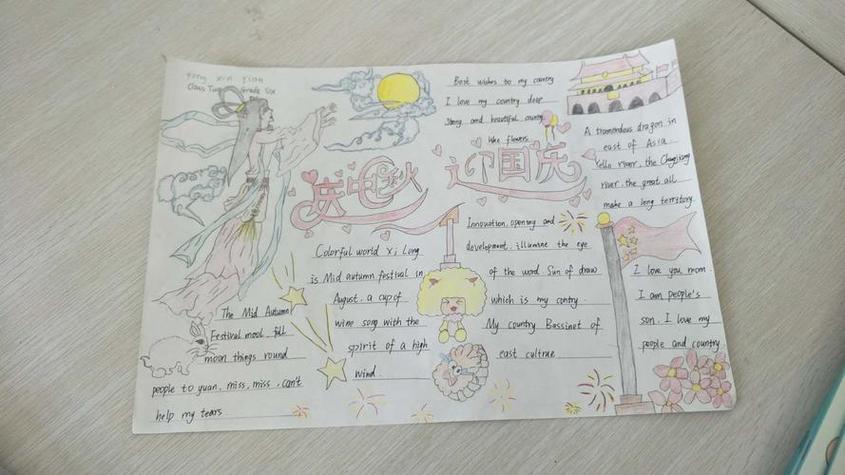 Class Two Grade Six
庆中秋
迎国庆
Best wishes to my country
I love my country dear
Strong and beautiful country
like flowers
A tramendous dragon in
east of Asia
Yello river, the Changjiang
river, the great all
make a long territory.
Colorful world Xi Long
is Mid autumn festival in
August. a cup of
wine song with the
spirit of a high
wind.
Innovation, opening and
development, illumine the eye
of the word Sun of draw
which is my contry
My country Bassinet of
east cultrue
I love you mom
I am people's
son. I love my
people and country
The Mid Autumn
Festival mool, full
moon things round
people to yuan, miss, miss, can't
help my tears